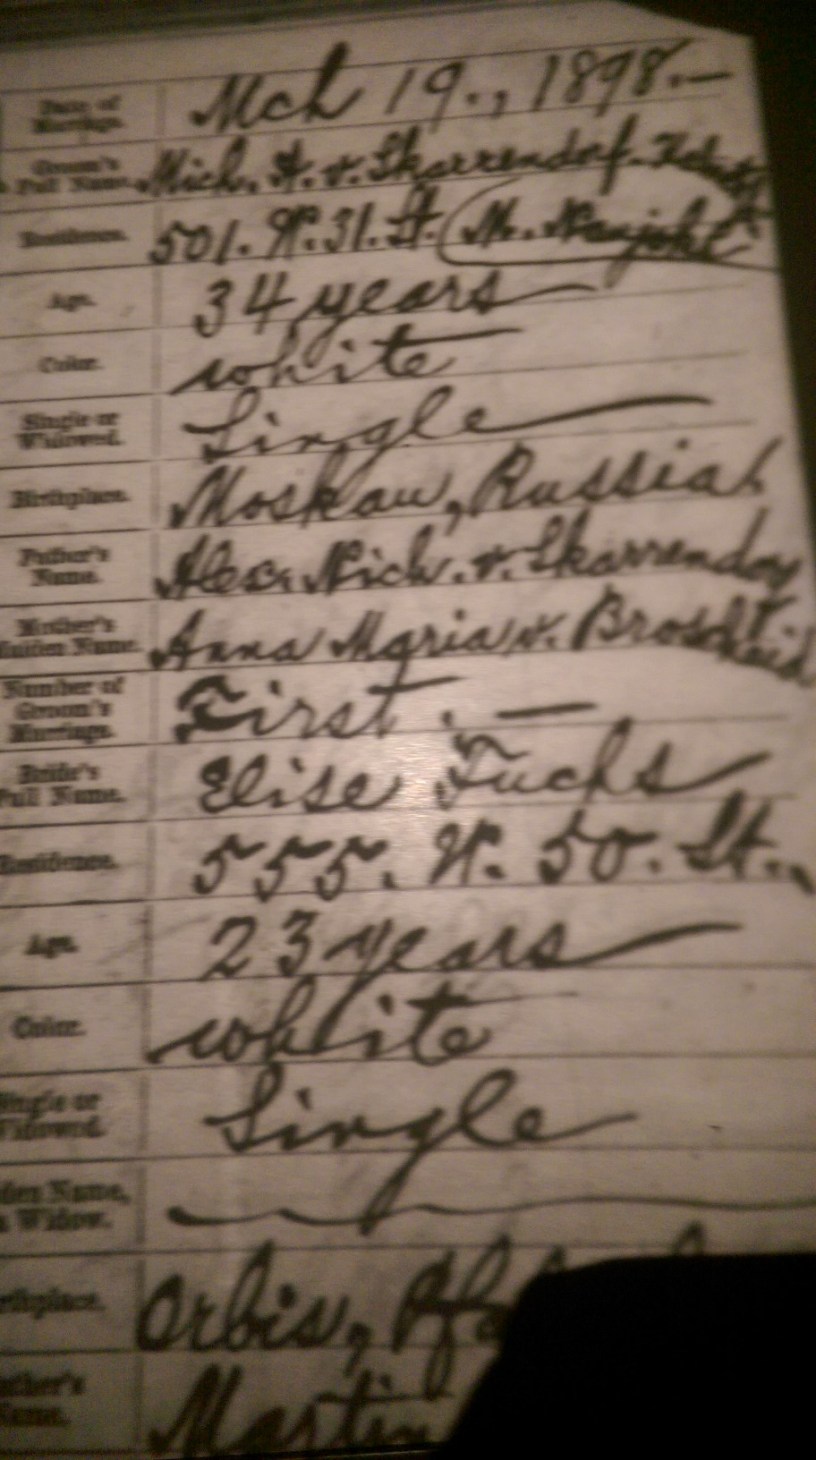 Date of Marriage. Mch 19., 1898.—
Groom's Full Name. Mich. A. v. Skarrendorf-
Residence. 501. W. 31. St.
Age. 34 years
Color. white
Single or Widowed. Single
Birthplace. Moskau, Russia
Father's Name. Alex. Nich. v. Skarrendorf
Mother's Maiden Name. Anna Maria v.
Number of Groom's Marriage. First. —
Bride's Full Name. Elise Fuchs
Residence. 555. W. 50. St.
Age. 23 years
Color. white
Single or Widowed. Single
Name,
Widow.
Orbis,
Martin